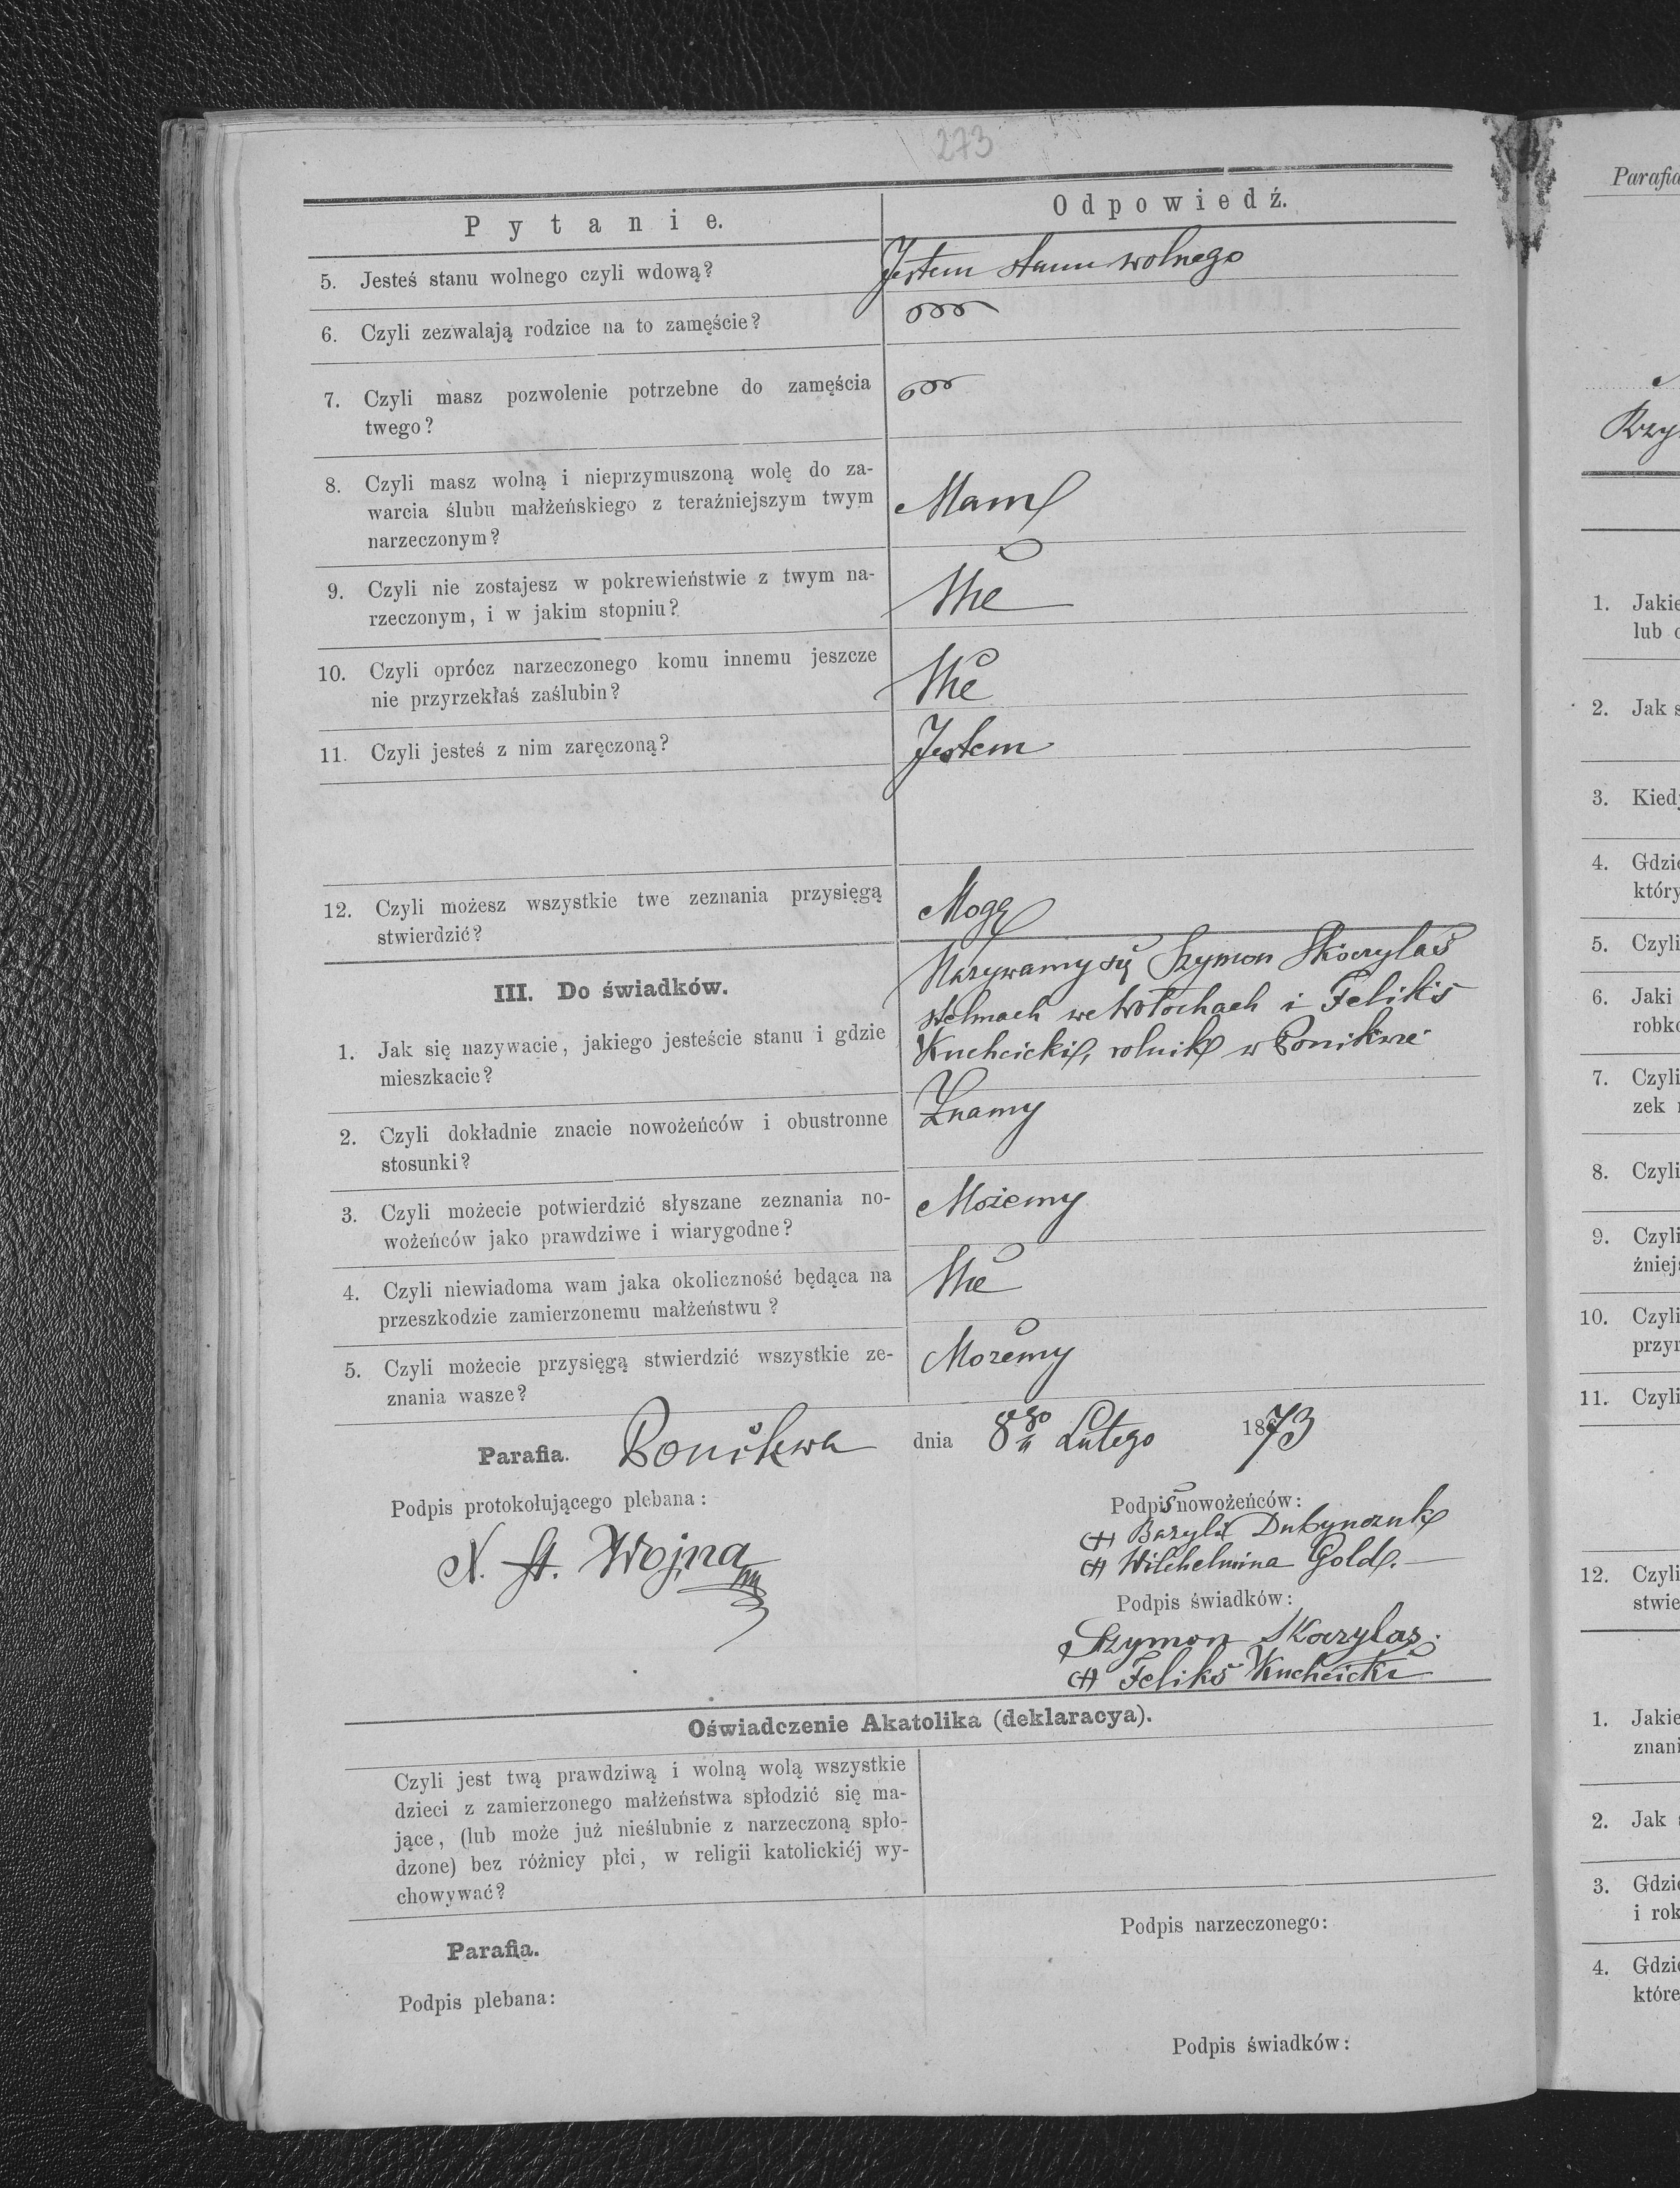 273
Pytanie.
Odpowiedź.
5. Jesteś stanu wolnego czyli wdową?
Jestem stanu wolnego
6. Czyli zezwalają rodzice na to zamęście?
7. Czyli masz pozwolenie potrzebne do zamęścia
twego?
8. Czyli masz wolną i nieprzymuszoną wolę do za-
warcia ślubu małżeńskiego z teraźniejszym twym
narzeczonym?
Mam
9. Czyli nie zostajesz w pokrewieństwie z twym na-
rzeczonym, i w jakim stopniu?
Nie
10. Czyli oprócz narzeczonego komu innemu jeszcze
nie przyrzekłaś zaślubin?
Nie
11. Czyli jesteś z nim zaręczoną?
Jestem
12. Czyli możesz wszystkie twe zeznania przysięgą
stwierdzić?
Mogę
III. Do świadków.
1. Jak się nazywacie, jakiego jesteście stanu i gdzie
mieszkacie?
Nazywamy się Szymon Skoczylas
stelmach we Wołochach i Feliks
Kuchcicki, rolnik w Ponikwie
2. Czyli dokładnie znacie nowożeńców i obustronne
stosunki?
Znamy
3. Czyli możecie potwierdzić słyszane zeznania no-
wożeńców jako prawdziwe i wiarygodne?
Możemy
4. Czyli niewiadoma wam jaka okoliczność będąca na
przeszkodzie zamierzonemu małżeństwu?
Nie
5. Czyli możecie przysięgą stwierdzić wszystkie ze-
znania wasze?
Możemy
Parafia. Ponikwa dnia 8go Lutego 1873
Podpis protokołującego plebana:
X. St. Wojna
Podpis nowożeńców:
Bazyli Dubynczuk
Wilchelmina Gold.
Podpis świadków:
Szymon Skoczylas.
Feliks Kuchcicki
Oświadczenie Akatolika (deklaracya).
Czyli jest twą prawdziwą i wolną wolą wszystkie
dzieci z zamierzonego małżeństwa spłodzić się ma-
jące, (lub może już nieślubnie z narzeczoną spło-
dzone) bez różnicy płci, w religii katolickiéj wy-
chowywać?
Parafia.
Podpis narzeczonego:
Podpis plebana:
Podpis świadków:
Parafia
1. Jakie
lub
2. Jak
3. Kiedy
4. Gdzie
który
5. Czyli
6. Jaki
7. Czyli
zek
8. Czyli
9. Czyli
10. Czyli
11. Czyli
12. Czyli
1. Jakie
2. Jak
3. Gdzie
i rok
4. Gdzie
które